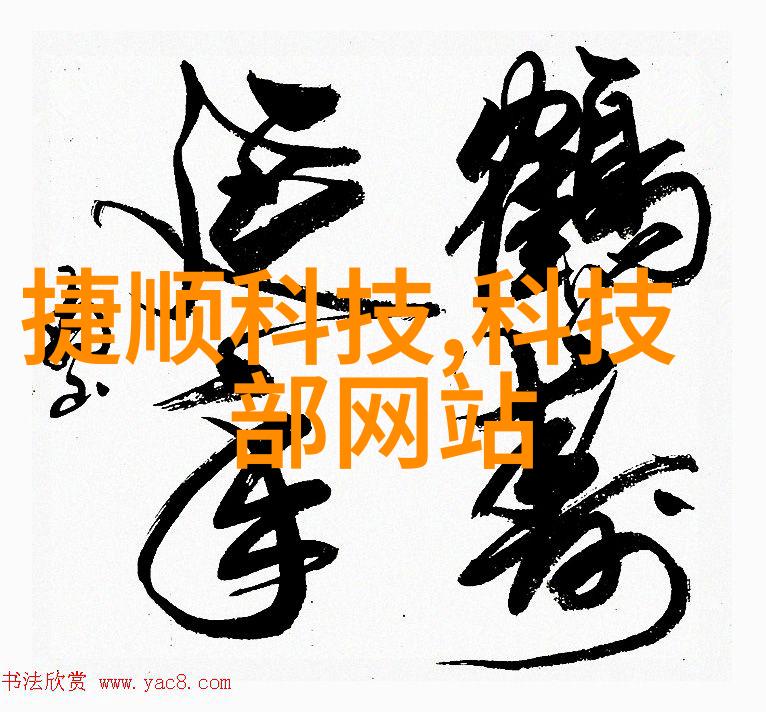 鶴寿
延年
捷顺科技,科技
部网站
书法欣赏 www.yac8.com